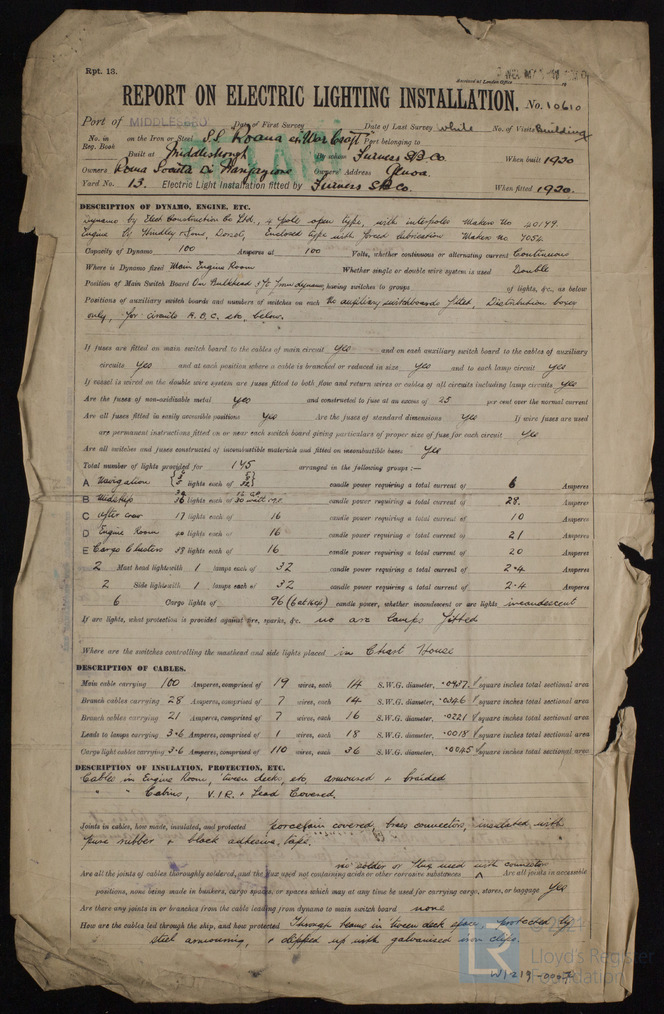 Rpt. 13.
Received at London Office
REPORT ON ELECTRIC LIGHTING INSTALLATION. No. 10610
Port of MIDDLESBRO Date of First Survey Date of Last Survey while No. of Visits Building
No. in Reg. Book on the Iron or Steel S.S. Roana ex War Croft Port belonging to
Built at Middlesbrough By whom Furness S.B. Co. When built 1920
Owners Roma Societa Di Navigazione Owners' Address Genoa.
Yard No. 13. Electric Light Installation fitted by Furness S.B. Co. When fitted 1920.
DESCRIPTION OF DYNAMO, ENGINE, ETC.
Dynamo by Elect. Construction Co Ltd., 4 pole open type, with interpoles Makers No 40179.
Engine by Hindley & Sons, Dorset, Enclosed type with forced lubrication Makers No 7056.
Capacity of Dynamo 100 Amperes at 100 Volts, whether continuous or alternating current Continuous
Where is Dynamo fixed Main Engine Room Whether single or double wire system is used Double
Position of Main Switch Board On Bulkhead 5 ft from dynamo, having switches to groups of lights, &c., as below
Positions of auxiliary switch boards and numbers of switches on each No auxiliary switchboards fitted, Distribution boxes
only, for circuits A.B.C. etc. below.
If fuses are fitted on main switch board to the cables of main circuit yes and on each auxiliary switch board to the cables of auxiliary
circuits yes and at each position where a cable is branched or reduced in size yes and to each lamp circuit yes
If vessel is wired on the double wire system are fuses fitted to both flow and return wires or cables of all circuits including lamp circuits yes
Are the fuses of non-oxidizable metal yes and constructed to fuse at an excess of 25 per cent over the normal current
Are all fuses fitted in easily accessible positions yes Are the fuses of standard dimensions yes If wire fuses are used
are permanent instructions fitted on or near each switch board giving particulars of proper size of fuse for each circuit yes
Are all switches and fuses constructed of incombustible materials and fitted on incombustible bases yes
Total number of lights provided for 145 arranged in the following groups:—
A Navigation lights each of candle power requiring a total current of 6 Amperes
B Midship lights each of candle power requiring a total current of 28 Amperes
C After crew 17 lights each of 16 candle power requiring a total current of 10 Amperes
D Engine Room 40 lights each of 16 candle power requiring a total current of 21 Amperes
E Cargo Clusters 38 lights each of 16 candle power requiring a total current of 20 Amperes
2 Mast head light with 1 lamps each of 32 candle power requiring a total current of 2.4 Amperes
2 Side light with 1 lamps each of 32 candle power requiring a total current of 2.4 Amperes
6 Cargo lights of 96 (6 at 16 cp) candle power, whether incandescent or arc lights incandescent
If arc lights, what protection is provided against fire, sparks, &c. no arc lamps fitted
Where are the switches controlling the masthead and side lights placed in Chart House
DESCRIPTION OF CABLES.
Main cable carrying 100 Amperes, comprised of 19 wires, each 14 S.W.G. diameter, .0937 square inches total sectional area
Branch cables carrying 28 Amperes, comprised of 7 wires, each 14 S.W.G. diameter, .0346 square inches total sectional area
Branch cables carrying 21 Amperes, comprised of 7 wires, each 16 S.W.G. diameter, .0221 square inches total sectional area
Leads to lamps carrying 3.6 Amperes, comprised of 1 wires, each 18 S.W.G. diameter, .0018 square inches total sectional area
Cargo light cables carrying 3.6 Amperes, comprised of 110 wires, each 36 S.W.G. diameter, .0045 square inches total sectional area
DESCRIPTION OF INSULATION, PROTECTION, ETC.
Cables in Engine Room, 'tween decks, etc. armoured & braided
" " Cabins, V.I.R. & Lead Covered.
Joints in cables, how made, insulated, and protected porcelain covered, brass connectors, insulated with
pure rubber & black adhesive tape.
no solder or flux used with connectors
Are all the joints of cables thoroughly soldered, and the flux used not containing acids or other corrosive substances Are all joints in accessible
positions, none being made in bunkers, cargo spaces, or spaces which may at any time be used for carrying cargo, stores, or baggage yes
Are there any joints in or branches from the cable leading from dynamo to main switch board none
How are the cables led through the ship, and how protected Through beams in 'tween deck space, protected by
steel armouring, & clipped up with galvanised iron clips.
LR
Lloyd's Register
Foundation
W1219-0007